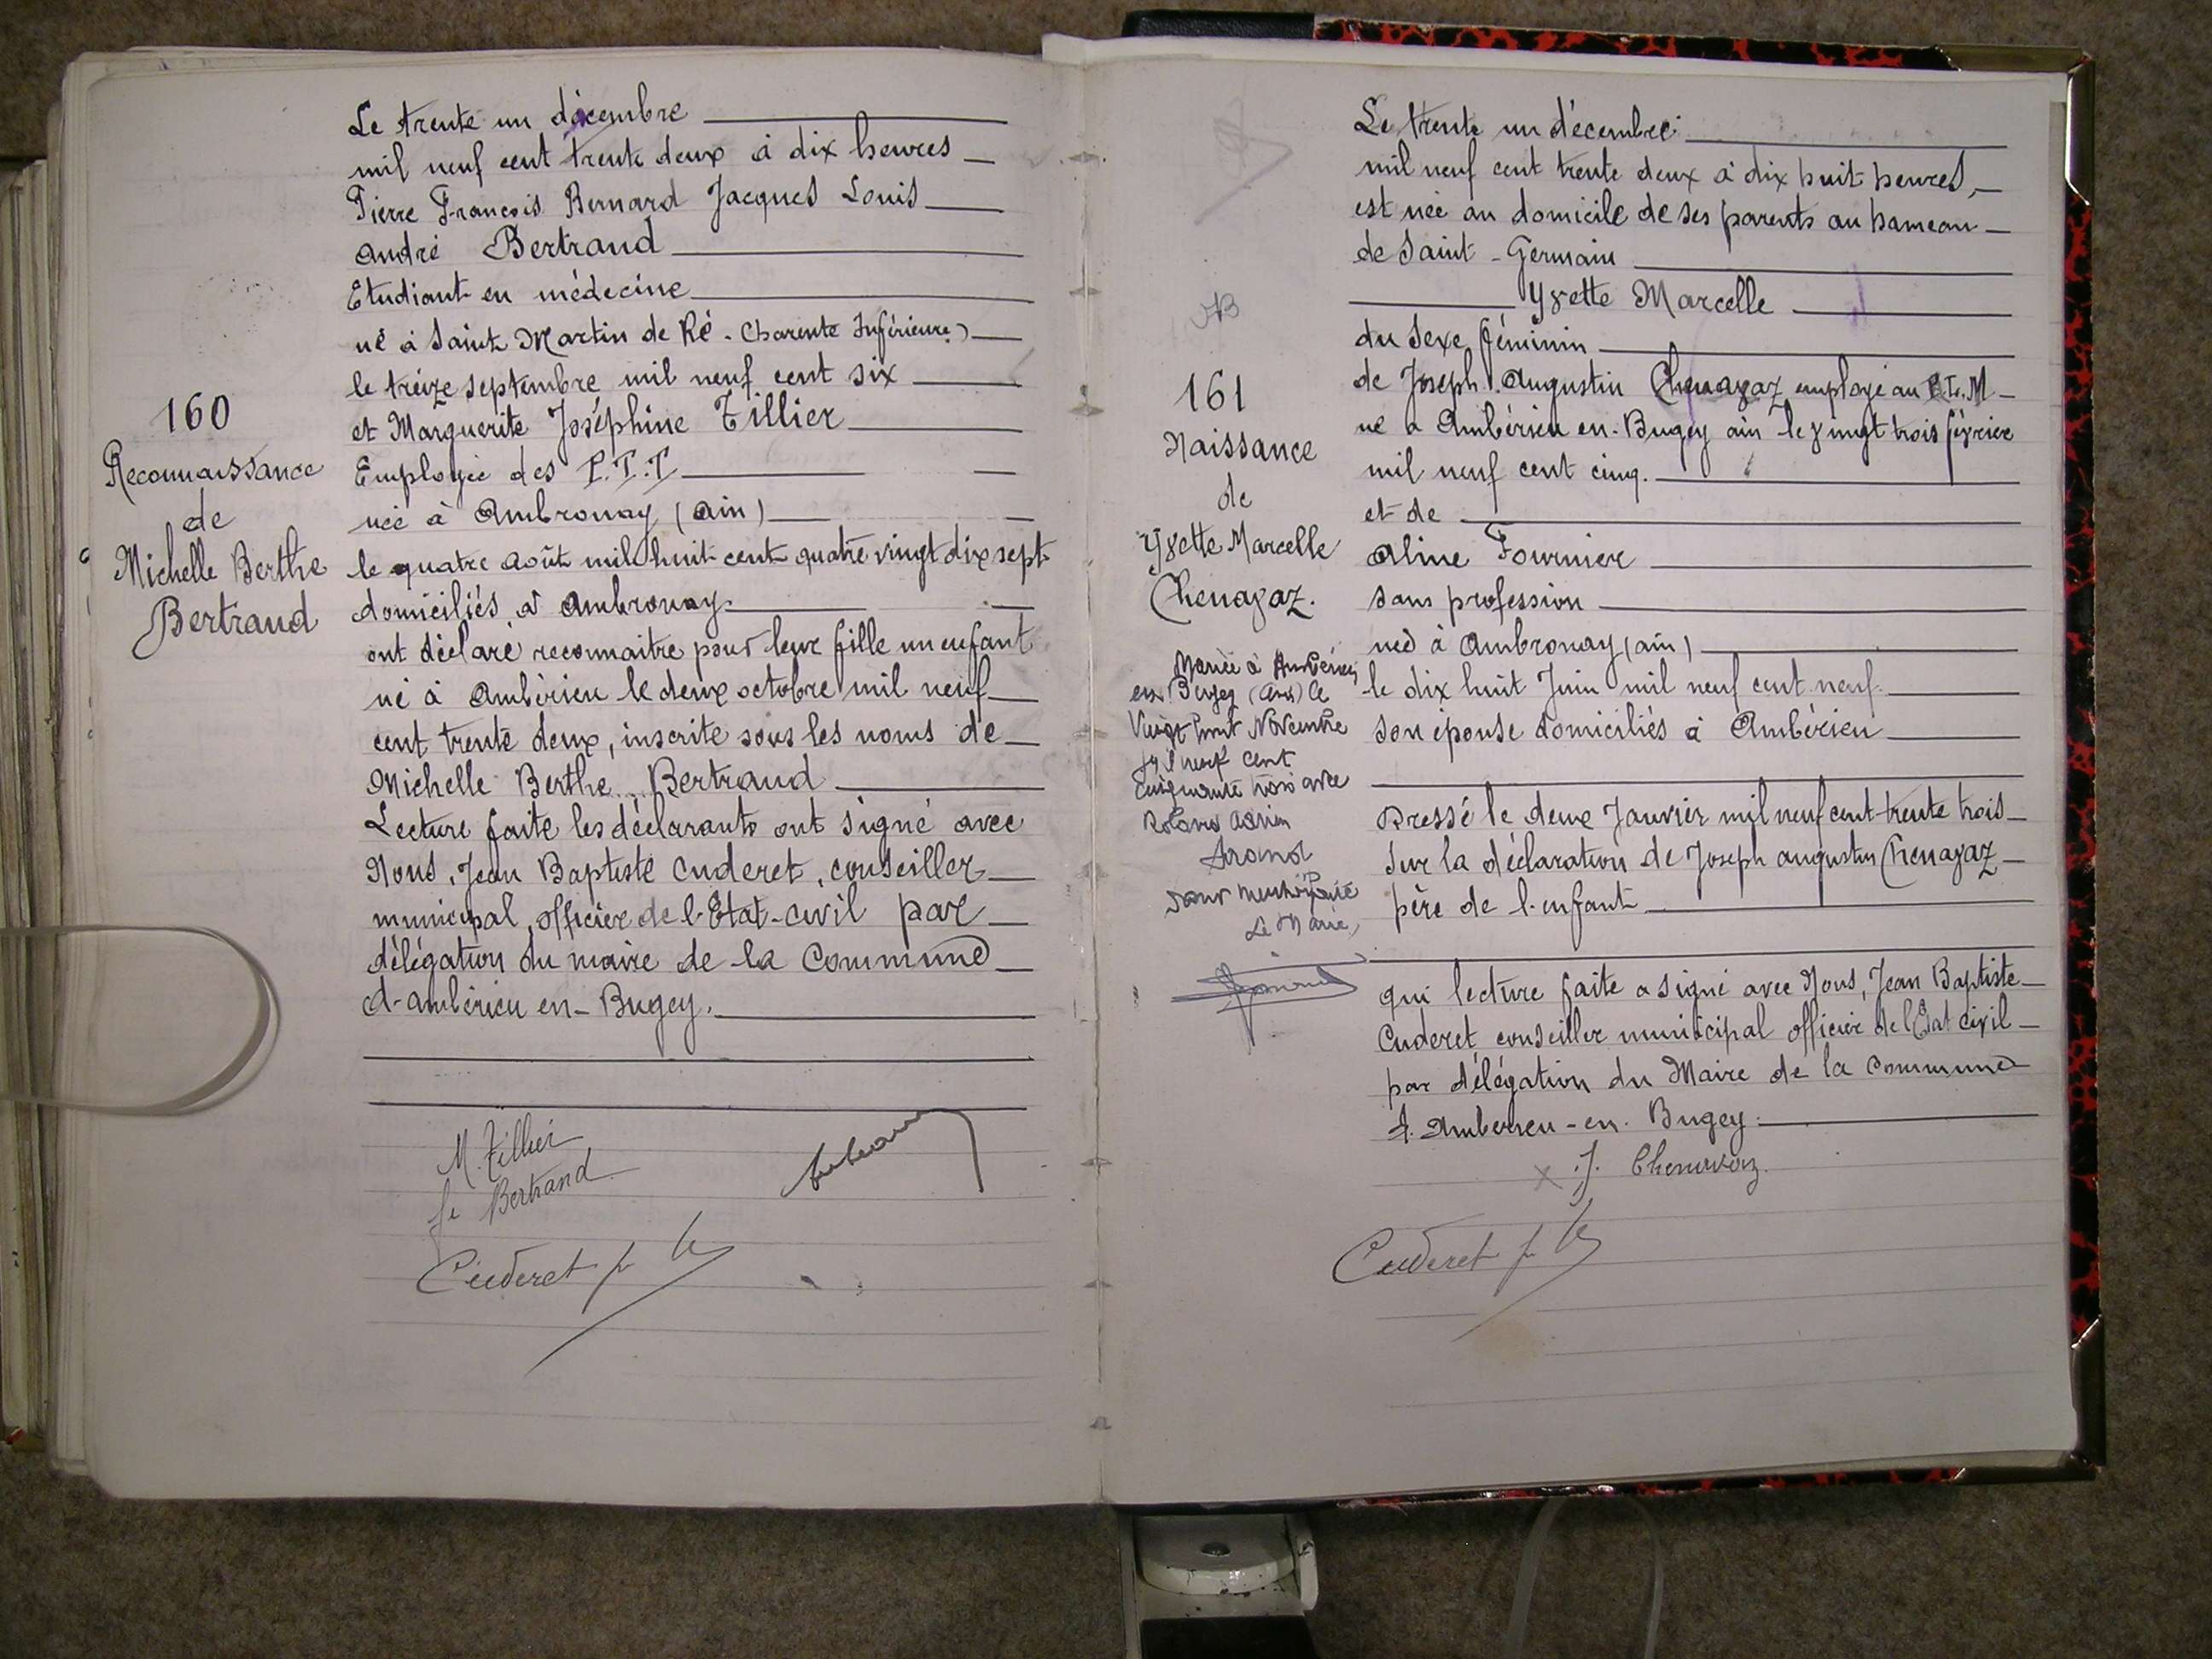 160
Reconnaissance
de
Michelle Berthe
Bertrand
Le trente un décembre
mil neuf cent trente deux à dix heures
Pierre François Bernard Jacques Louis
André Bertrand
Etudiant en médecine
né à Saint Martin de Ré - Charente Inférieure)
le treize septembre mil neuf cent six
et Marguerite Joséphine Tillier
Employée des P.T.T
née à Ambronay (Ain)
le quatre août mil huit cent quatre vingt dix sept
domiciliés à Ambronay.
ont déclaré reconnaitre pour leur fille un enfant
né à Ambérieu le deux octobre mil neuf
cent trente deux, inscrite sous les noms de
Michelle Berthe Bertrand
Lecture faite les déclarants ont signé avec
Nous, Jean Baptiste Cuderet, conseiller
municipal, officier de l'Etat-civil par
délégation du maire de la Commune
d'Ambérieu en-Bugey.
M. Tillier
Bertrand
Cuderet
161
Naissance
de
Yvette Marcelle
Chenavaz.
Mariée à Ambérieu
en Bugey (Ain) le
Vingt huit Novembre
mil neuf cent
cinquante trois avec
Roland
Le Maire,
Le trente un décembre
mil neuf cent trente deux à dix huit heures,
est née au domicile de ses parents au hameau
de Saint-Germain
Yvette Marcelle
du sexe féminin
de Joseph Augustin Chenavaz employé au P.L.M
né à Ambérieu en-Bugey ain le vingt trois février
mil neuf cent cinq.
et de
Aline Fournier
sans profession
née à Ambronay (ain)
le dix huit Juin mil neuf cent neuf.
son épouse domiciliés à Ambérieu
Dressé le deux Janvier mil neuf cent trente trois
sur la déclaration de Joseph augustin Chenavaz
père de l'enfant
qui lecture faite a signé avec Nous, Jean Baptiste
Cuderet conseiller municipal officier de l'Etat civil
par délégation du Maire de la commune
d'Ambérieu-en-Bugey.
J. Chenavaz.
Cuderet